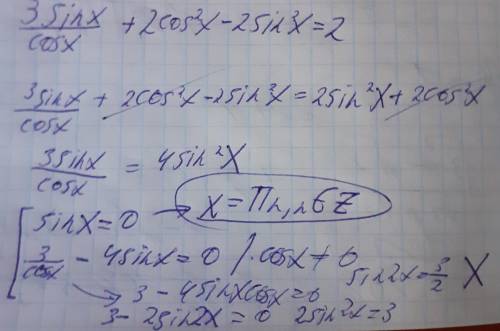 3sinx/cosx + 2cos²x - 2sin²x = 2
3sinx/cosx + 2cos²x - 2sin²x = 2sin²x + 2cos²x
3sinx/cosx = 4sin²x
sinx = 0 → x = Πn, n ∈ Z
3/cosx - 4sinx = 0 / · cosx ≠ 0
3 - 4sinxcosx = 0 sin2x = 3/2 X
3 - 2sin2x = 0 2sin2x = 3